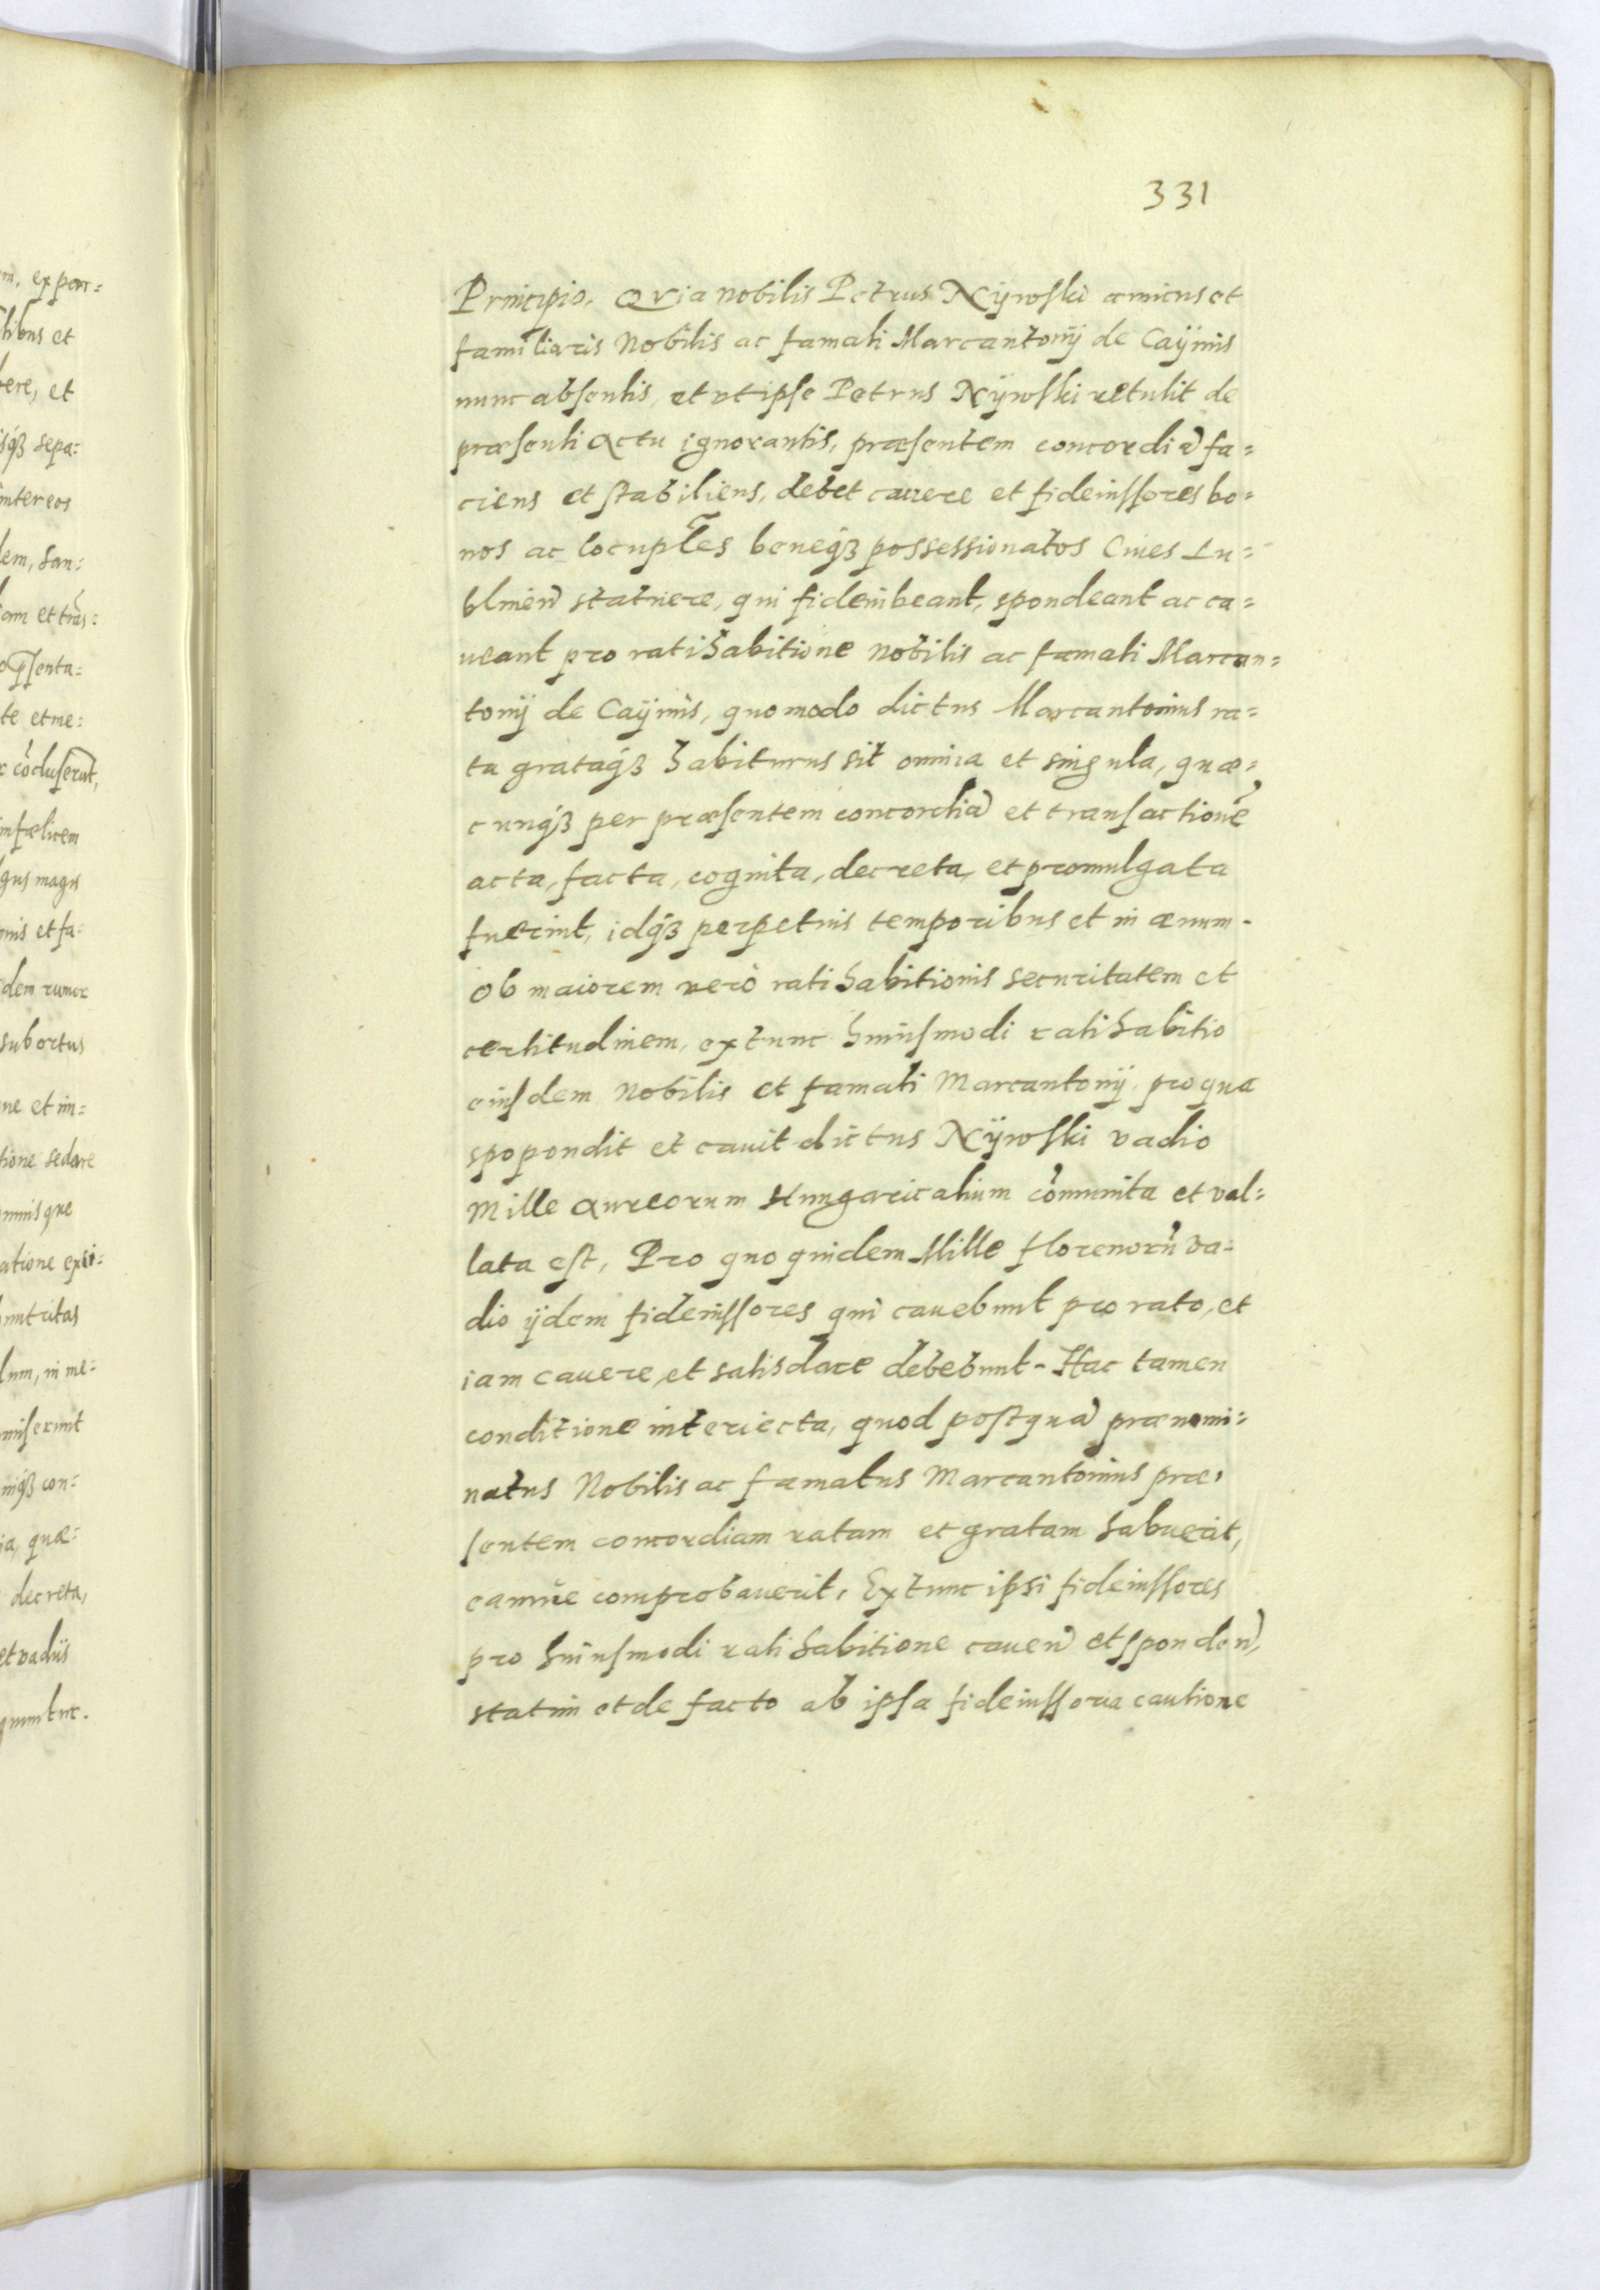 331
Principio, Qvia nobilis Petrus Nÿwski amicus et
familiaris Nobilis ac famati Marcantonij de Caÿmis
nunc absentis, et vt ipse Petrus Nÿwski retulit de
præsenti Actu ignorantis, præsentem concordiā fa=
ciens et stabiliens, debet cauere et fideiussores bo=
nos ac locuplt̃es beneqꝫ possessionatos Ciues Lu=
blineñ statuere, qui fideiubeant, spondeant ac ca=
ueant pro ratihabitione nobilis ac famati Marcan=
tonij de Caÿmis, quomodo dictus Marcantonius ra=
ta grataqꝫ habiturus sit omnia et singula, quæ=
cunqꝫ per præsentem concordiā et transactionē
acta, facta, cognita, decreta, et promulgata
fuerint, idqꝫ perpetuis temporibus et in æuum.
Ob maiorem verò ratihabitionis securitatem et
certitudinem, extunc huiusmodi ratihabitio
eiusdem Nobilis et famati Marcantonij, pro qua
spopondit et cauit dictus Nÿwski vadio
Mille Aureorum Hungaricalium cōmunita et val=
lata est, Pro quo quidem Mille florenorū va=
dio ijdem fideiussores qui cauebunt pro rato, et
iam cauere, et satisdare debebunt. Hac tamen
conditione interiecta, quod postquā prænomi=
natus Nobilis ac famatus Marcantonius præ=
sentem concordiam ratam et gratam habuerit,
eamue comprobauerit, Extunc ipsi fideiussores
pro huiusmodi ratihabitione caueñ et spondeñ,
statim et de facto ab ipsa fideiussoria cautione